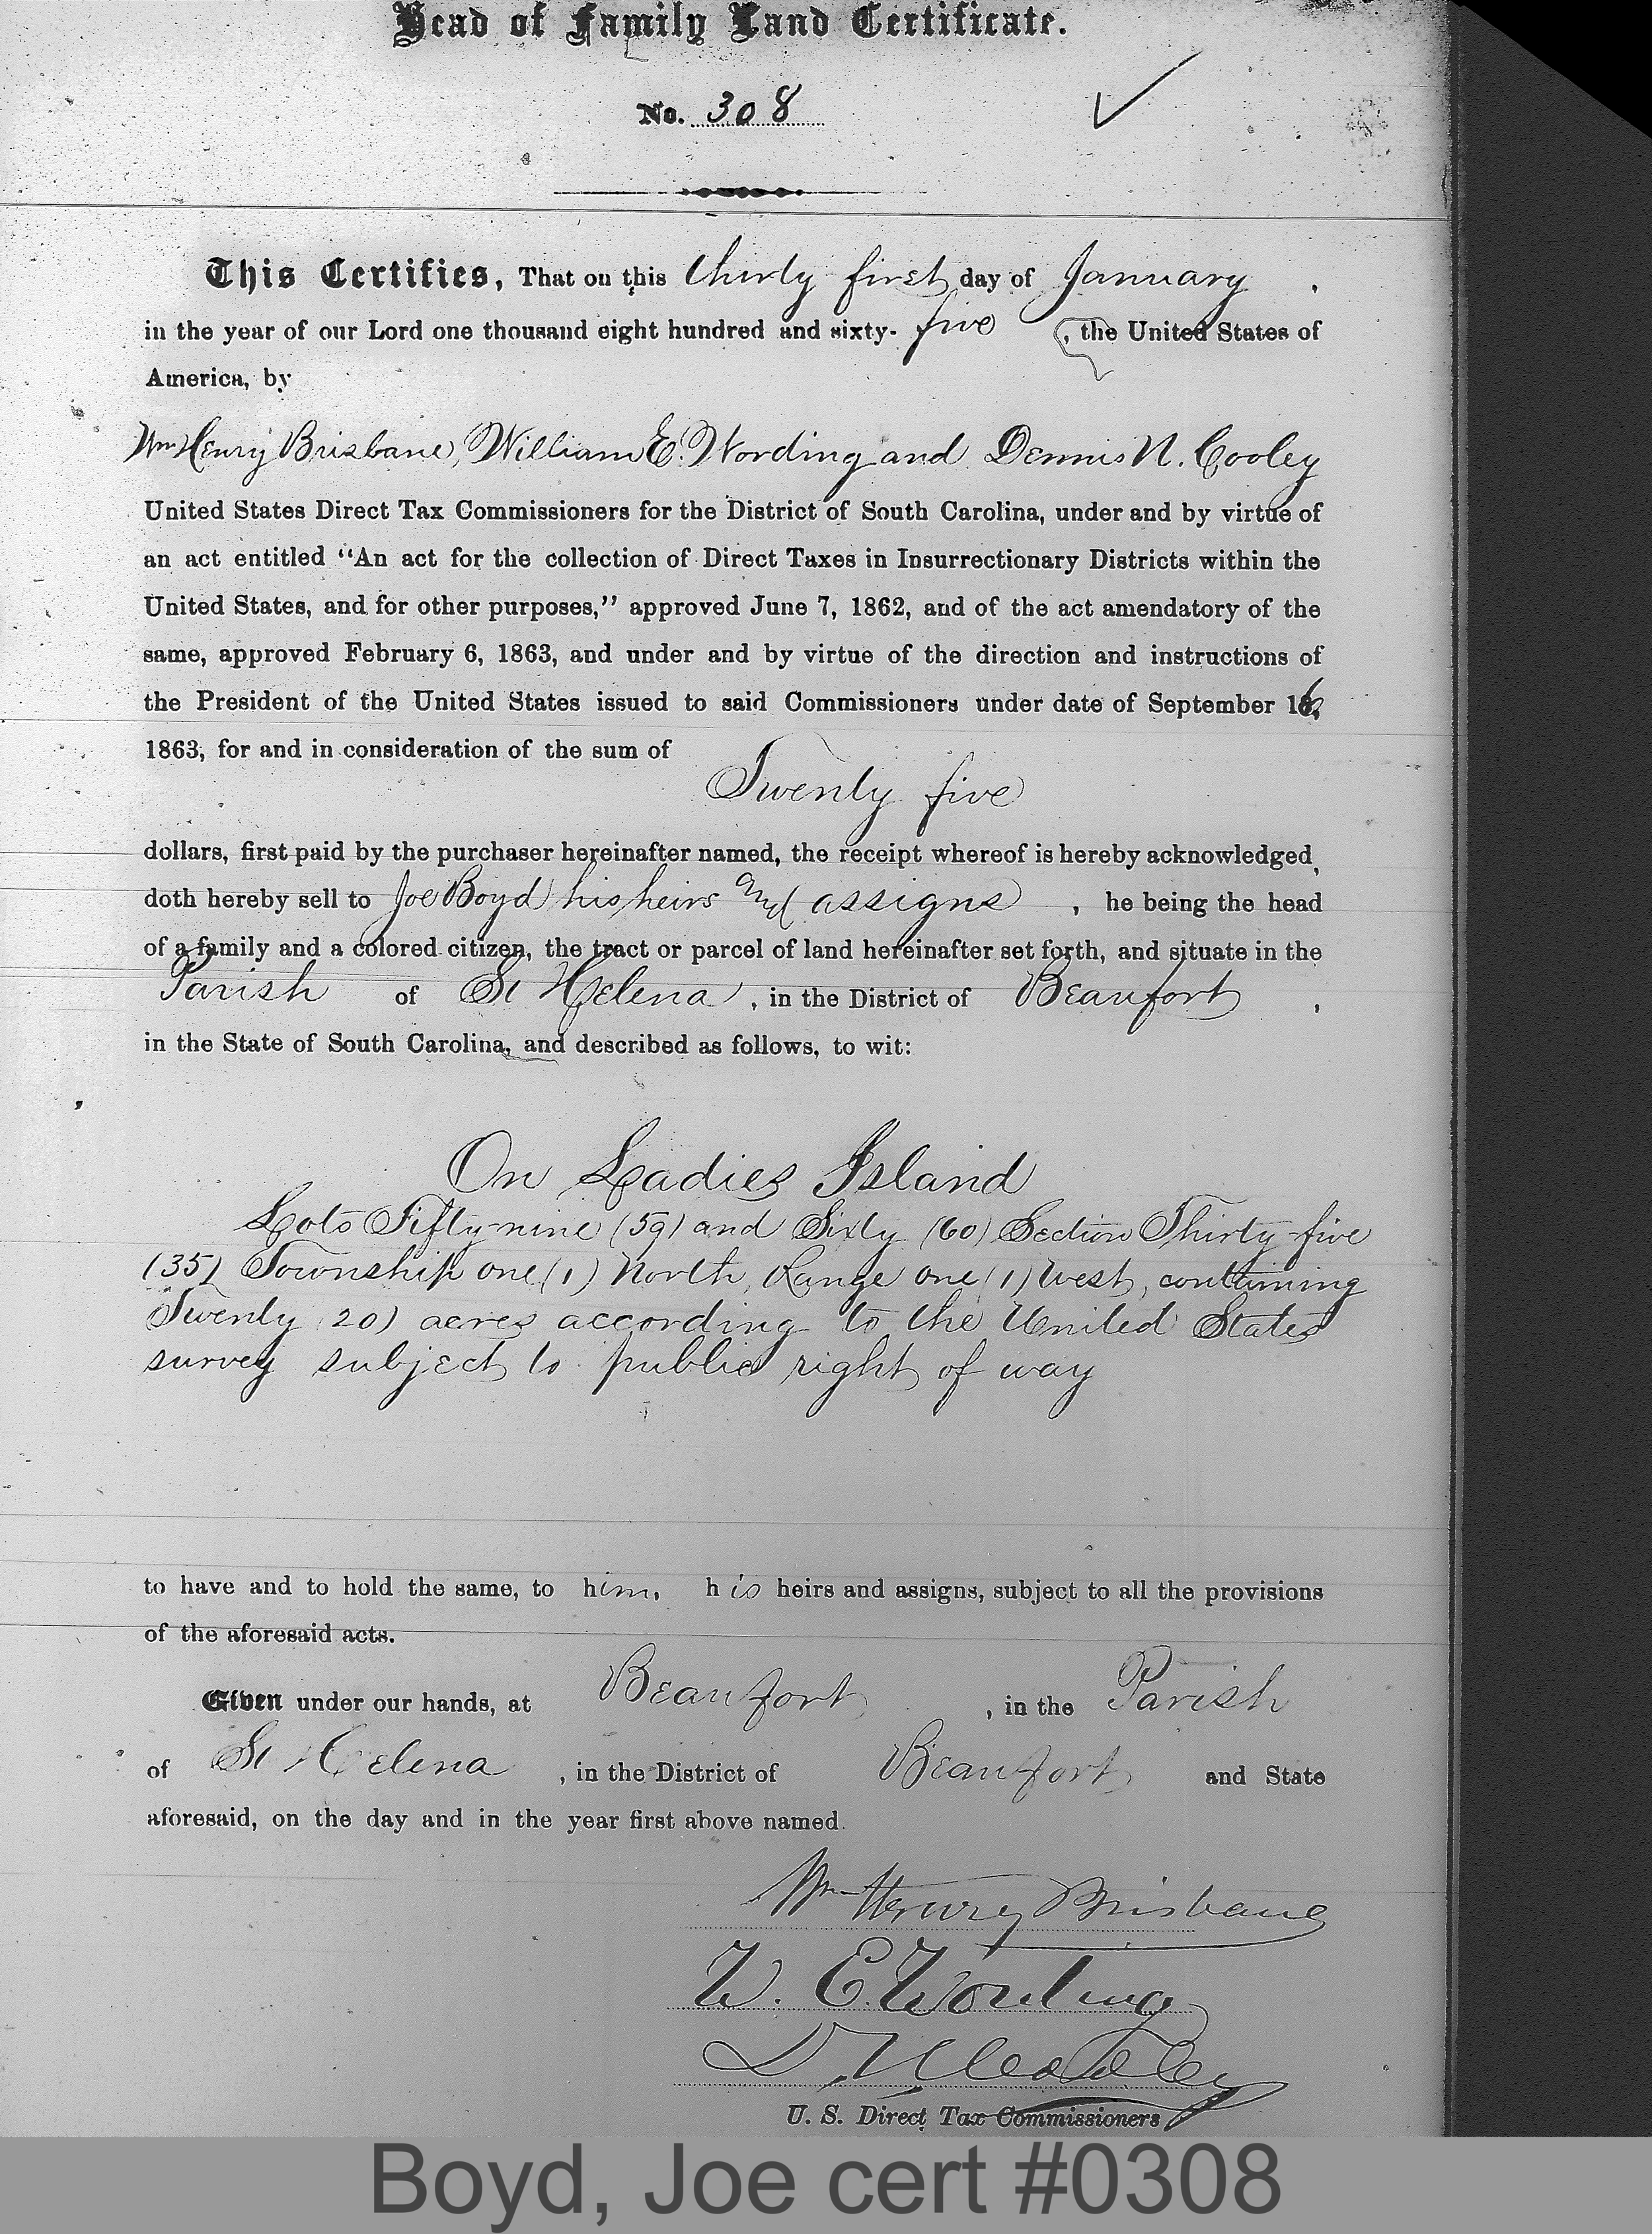 Head of Family Land Certificate.
No. 308
This Certifies, That on this thirty first day of January,
in the year of our Lord one thousand eight hundred and sixty-five, the United States of
America, by
Wm Henry Brisbane, William E. Wording and Dennis N. Cooley
United States Direct Tax Commissioners for the District of South Carolina, under and by virtue of
an act entitled "An act for the collection of Direct Taxes in Insurrectionary Districts within the
United States, and for other purposes," approved June 7, 1862, and of the act amendatory of the
same, approved February 6, 1863, and under and by virtue of the direction and instructions of
the President of the United States issued to said Commissioners under date of September 16,
1863, for and in consideration of the sum of
Twenty five
dollars, first paid by the purchaser hereinafter named, the receipt whereof is hereby acknowledged,
doth hereby sell to Joe Boyd his heirs and assigns, he being the head
of a family and a colored citizen, the tract or parcel of land hereinafter set forth, and situate in the
Parish of St Helena, in the District of Beaufort,
in the State of South Carolina, and described as follows, to wit:
On Ladies Island
Lots Fifty-nine (59) and Sixty (60) Section Thirty-five
(35) Township one (1) North, Range one (1) West, containing
Twenty (20) acres according to the United States
survey subject to public right of way
to have and to hold the same, to him, his heirs and assigns, subject to all the provisions
of the aforesaid acts.
Given under our hands, at Beaufort, in the Parish
of St Helena, in the District of Beaufort and State
aforesaid, on the day and in the year first above named.
Wm Henry Brisbane
W. E. Wording
D. N. Cooley
U. S. Direct Tax Commissioners
Boyd, Joe cert #0308